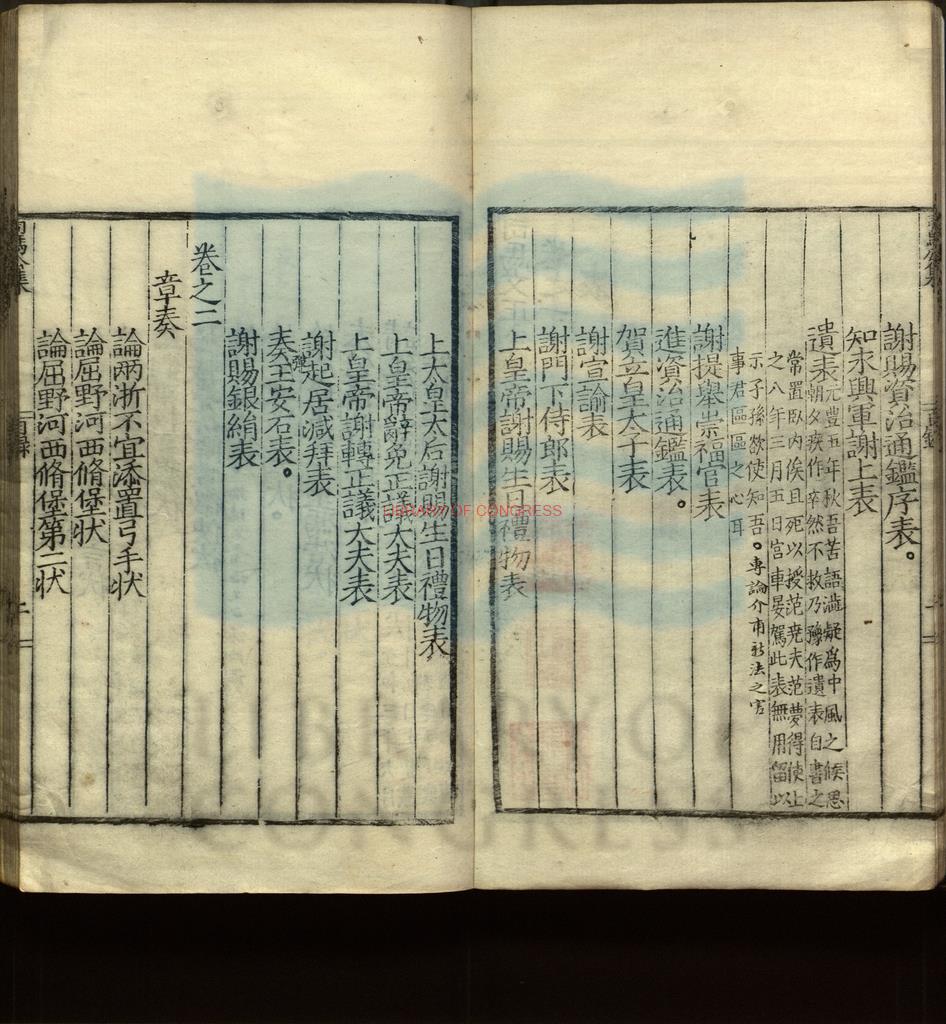 謝賜資治通鑑序表。
知永興軍謝上表
遺表
元豐五年秋吾苦語澁疑爲中風之候恐
朝夕疾作卒然不救乃豫作遺表自書之
常置臥内俟且死以授范堯夫范夢得使上
之八年三月五日宫車晏駕此表無用留以
示子孫欲使知吾
事君區區之心耳
。專論介甫新法之害
謝提舉崇福宫表
進資治通鑑表。
賀立皇太子表
謝宣諭表
謝門下侍郎表
上皇帝謝賜生日禮物表
上太皇太后謝賜生日禮物表
上皇帝辭免正議大夫表
上皇帝謝轉正議大夫表
謝起居減拜表
奏彈王安石表。
謝賜銀絹表
卷之二
章奏
論兩浙不宜添置弓手狀
論屈野河西脩堡狀
論屈野河西脩堡第二狀
LIBRARY OF CONGRESS